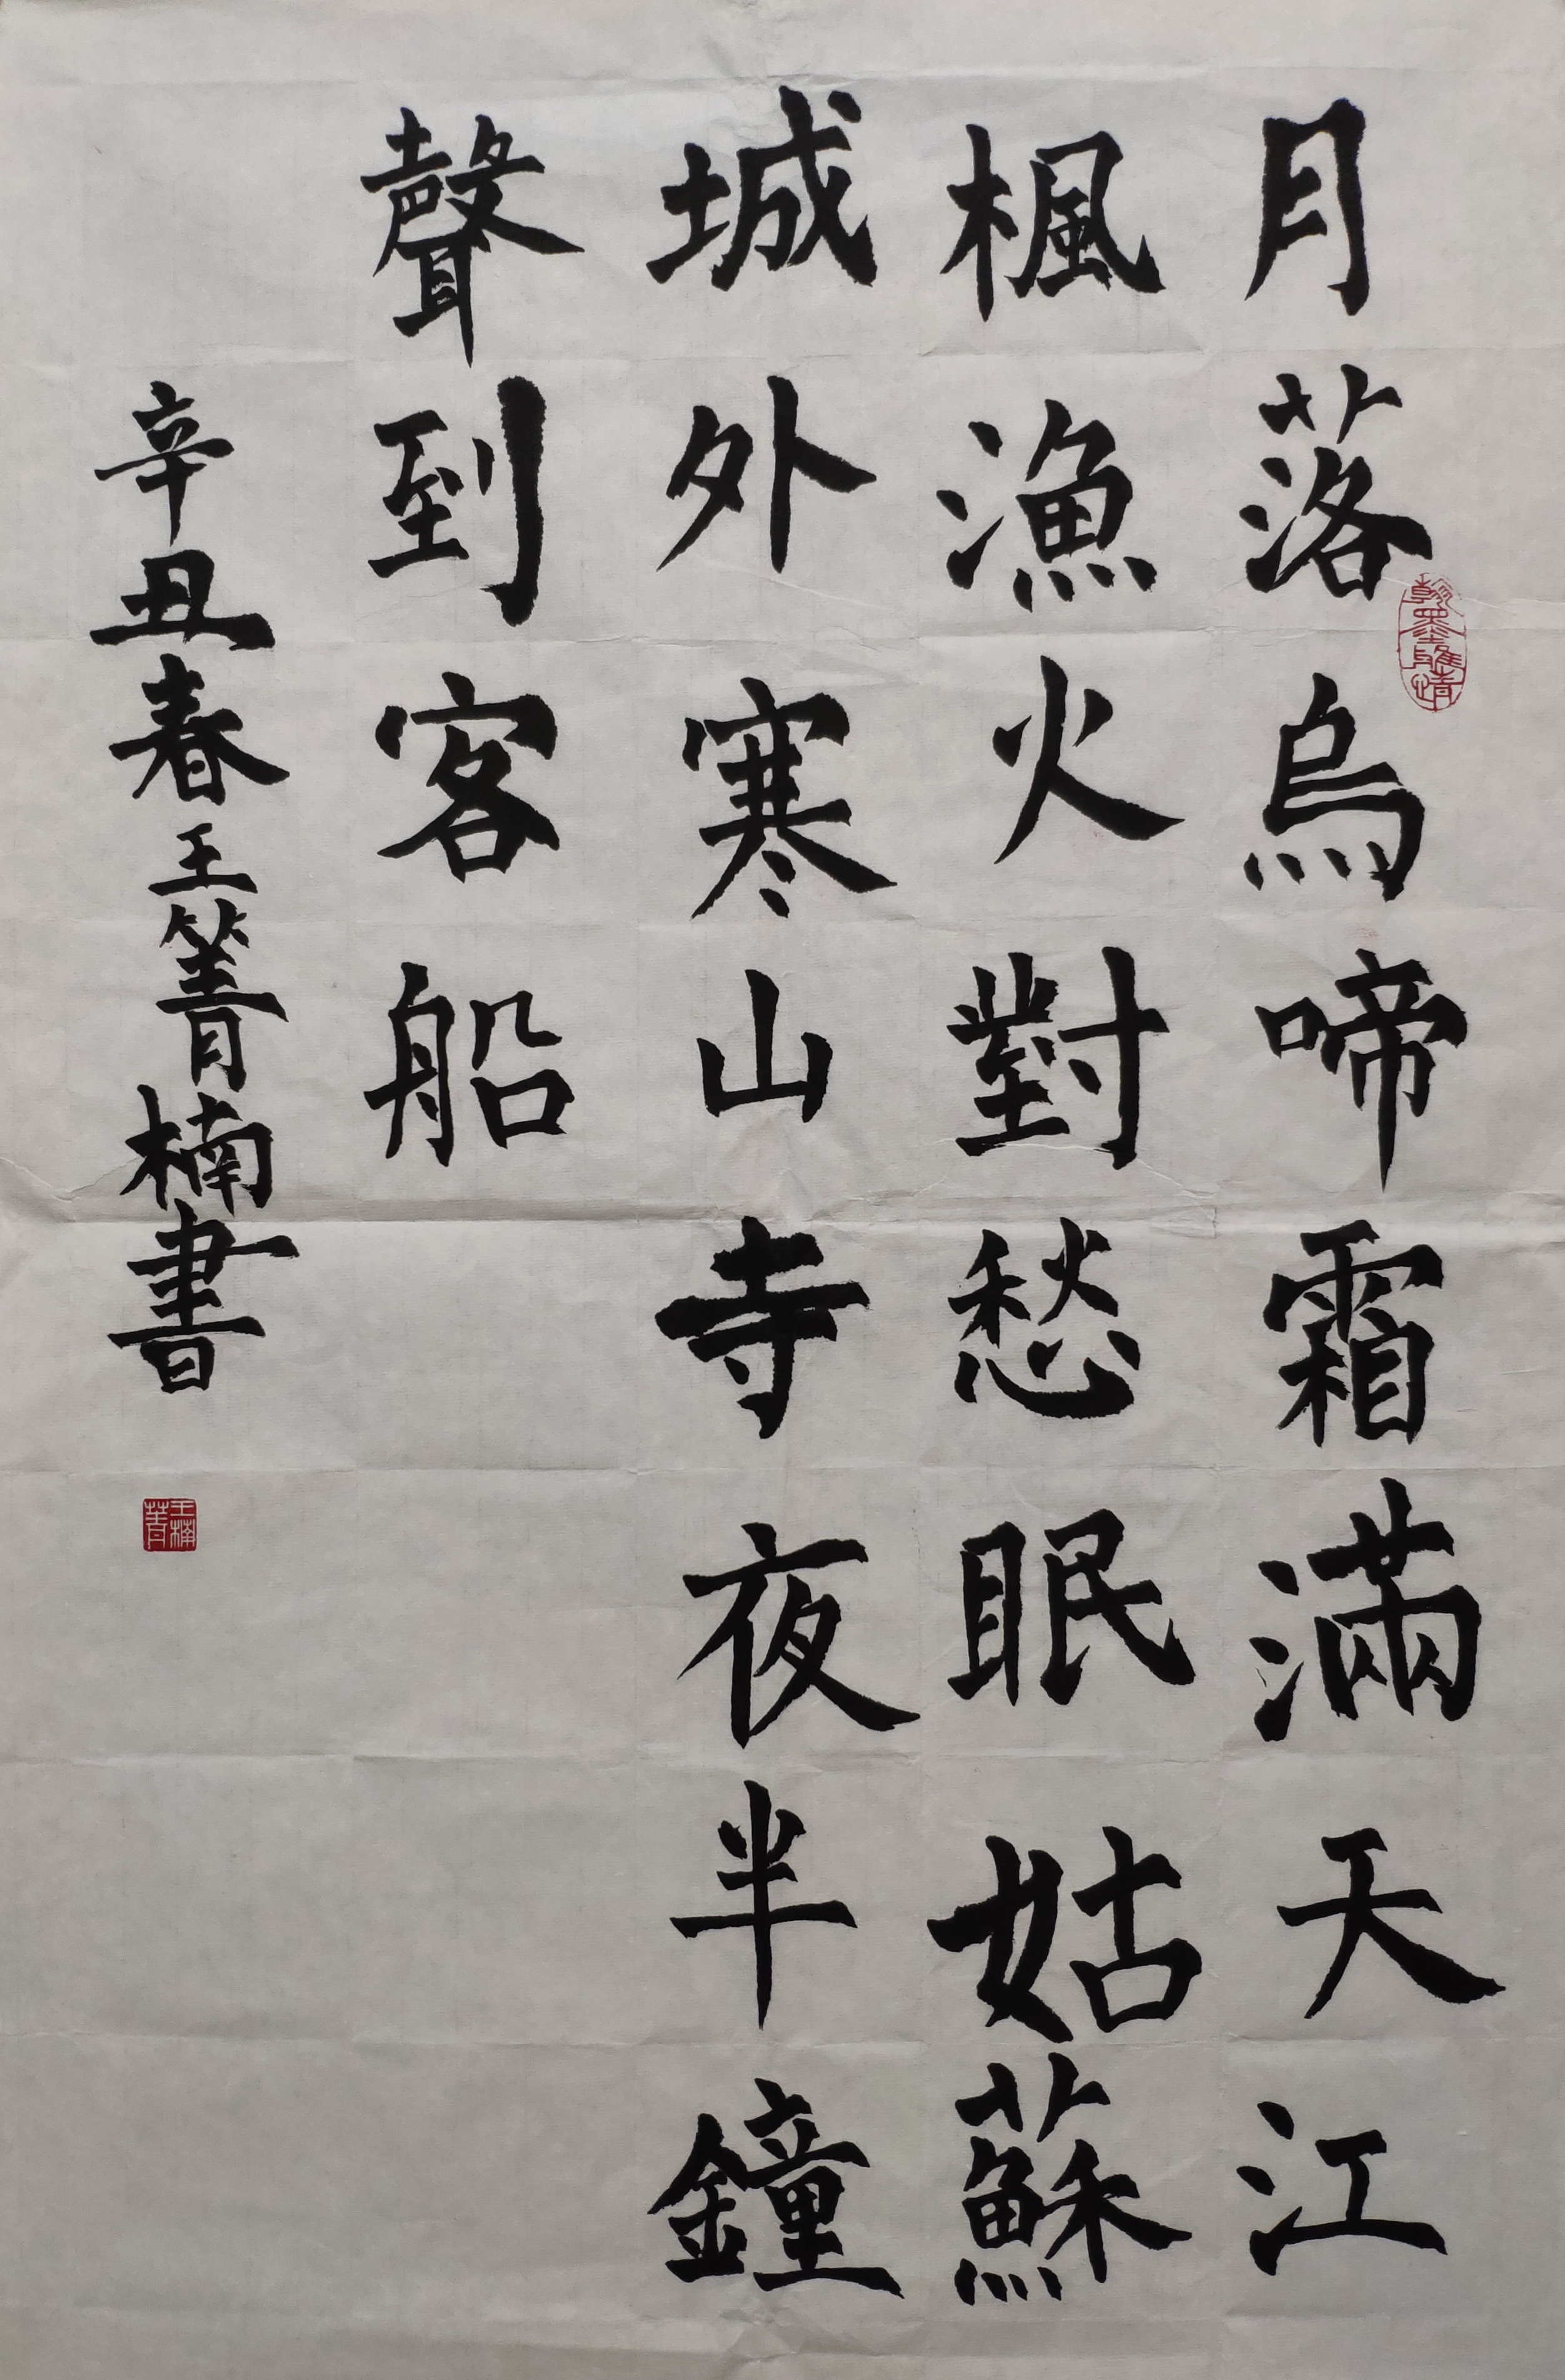 月落烏啼霜滿天江
楓漁火對愁眠姑蘇
城外寒山寺夜半鐘
聲到客船
辛丑春王箐楠書